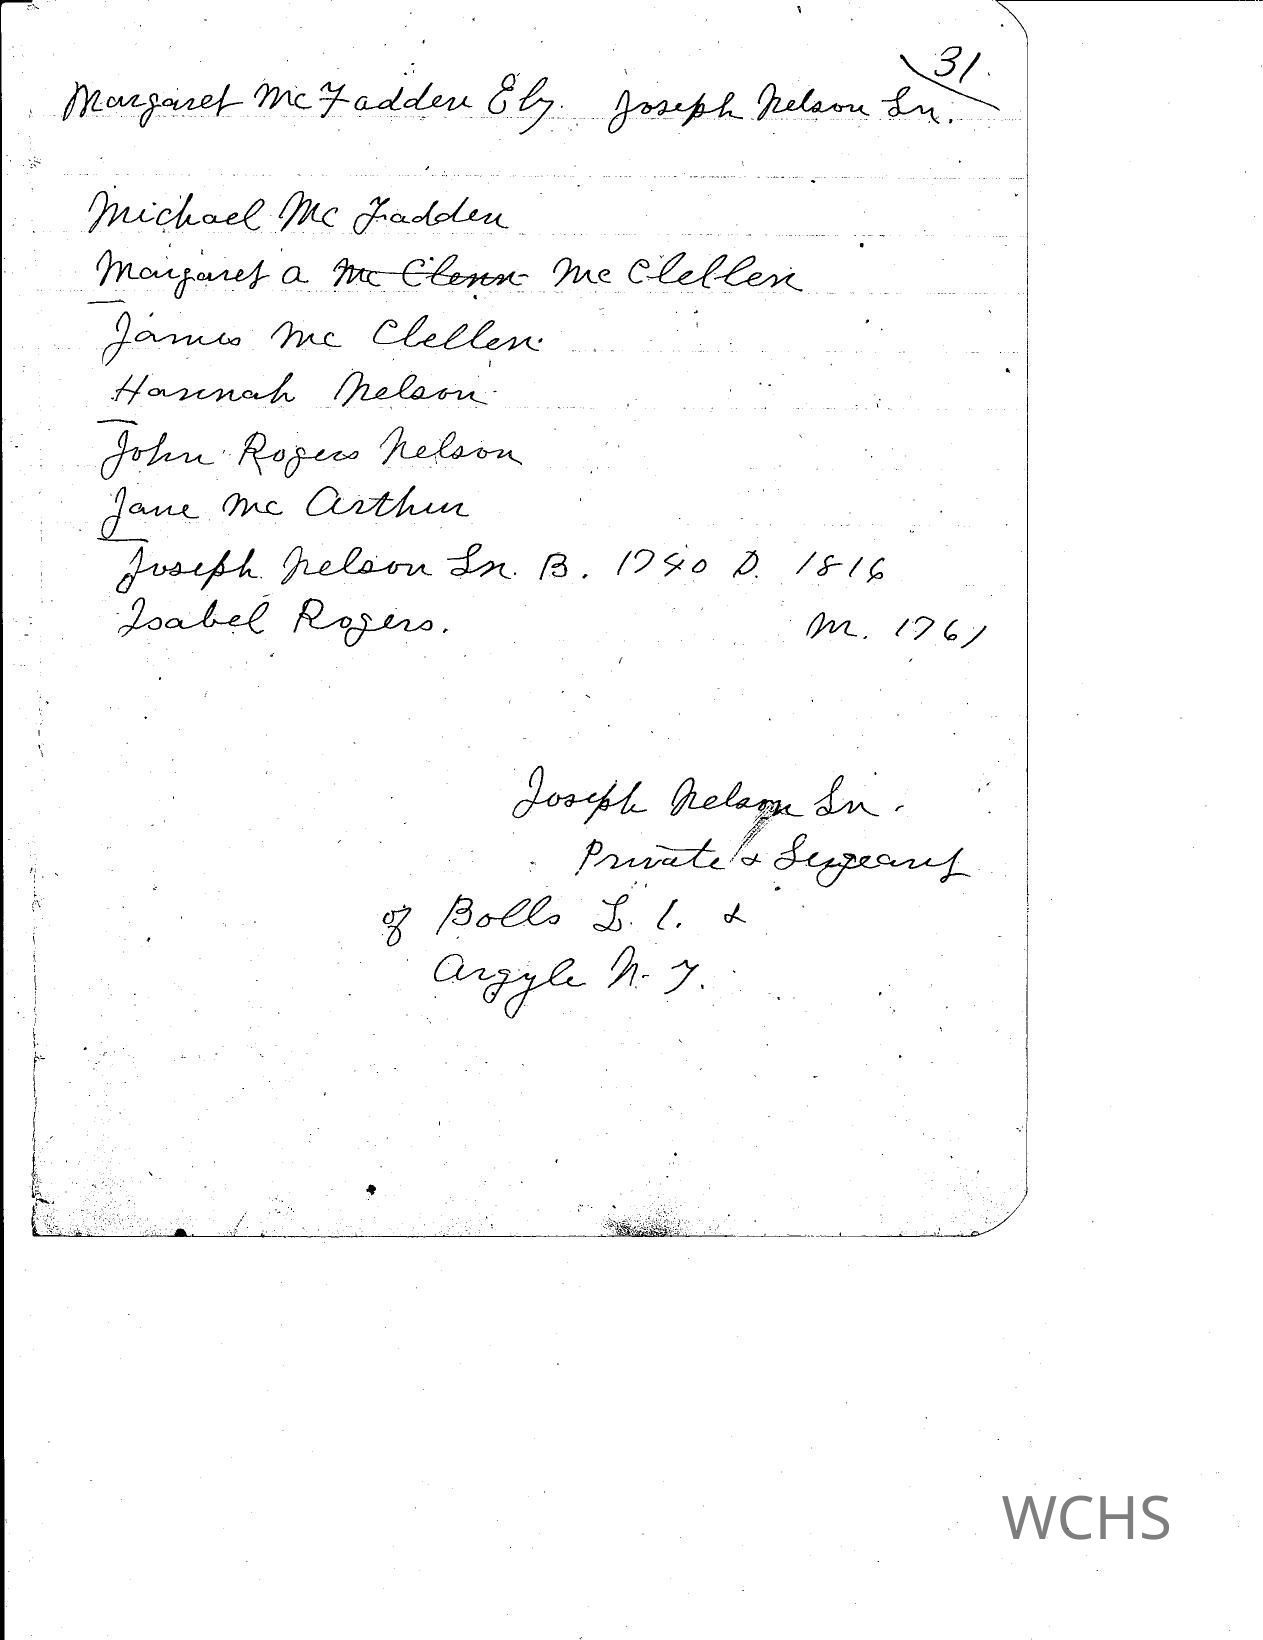 31.
Margaret McFadden Ely. Joseph Nelson Sr.
Michael McFadden
Margaret A Mc Clenn McClellen
James Mc Clellen
Hannah Nelson
John Rogers Nelson
Jane Mc Arthur
Joseph Nelson Sr. B. 1740 D. 1816
Isabel Rogers. M. 1761
Joseph Nelson Sr.
Private & Sergeant
of Bolls L. I. &
Argyle N.Y.
WCHS